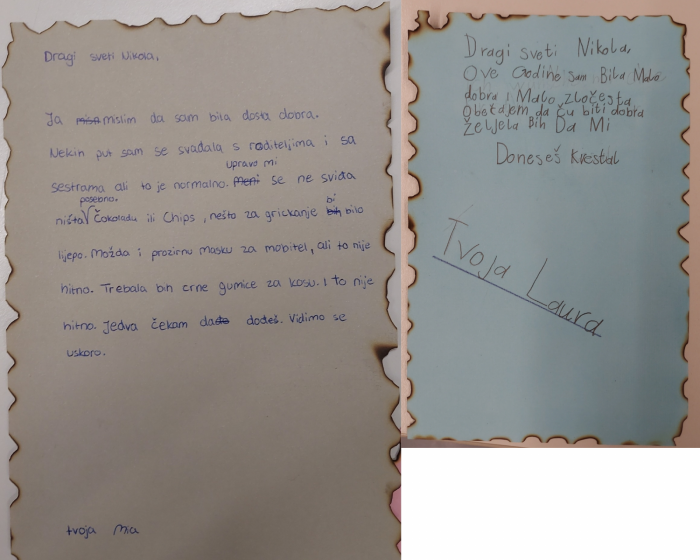 Dragi sveti Nikola,
Ja misn mislim da sam bila dosta dobra.
Nekin put sam se svađala s roditeljima i sa
upravo mi
sestrama ali to je normalno. Meni se ne sviđa
posebno.
ništa √ Čokoladu ili Chips, nešto za grickanje bih bilo
bi
lijepo. Možda i prozirnu masku za mobitel, ali to nije
hitno. Trebala bih crne gumice za kosu. I to nije
hitno. Jedva čekam da dođeš. Vidimo se
uskoro.
tvoja Mia
Dragi sveti Nikola,
Ove Godine sam Bila Malo
dobra i Malo zločesta
Obećajem da ću biti dobra
Željela Bih Da Mi
Doneseš Krestal
Tvoja Laura